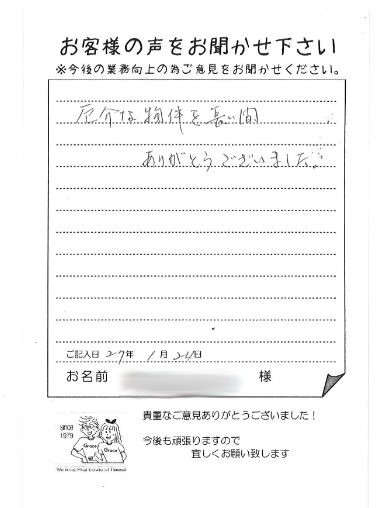 お客様の声をお聞かせ下さい
※今後の業務向上の為ご意見をお聞かせください。
厄介な物件を長い間
ありがとうございました。
ご記入日 27年 1月 24日
お名前 様
since
1979
Grace Grace
貴重なご意見ありがとうございました！
今後も頑張りますので
宜しくお願い致します